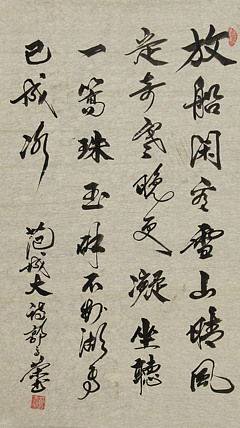 放船閑看雪山晴風
定奇寒晚更凝坐聽
一篙珠玉碎不知湖面
已成冰
范成大詩